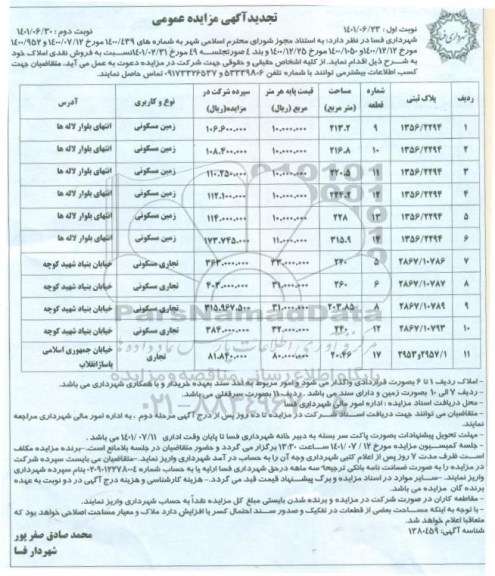 تجدید آگهی مزایده عمومی
نوبت اول: ۱۴۰۱/۰۶/۲۳
نوبت دوم: ۱۴۰۱/۰۶/۳۰
شهرداری فسا در نظر دارد: به استناد مجوز شورای محترم اسلامی شهر به شماره های ۱۴۰۰/۴۳۹ مورخ ۱۴۰۰/۰۷/۱۲ و ۱۴۰۰/۹۵۲
مورخ ۱۴۰۰/۱۲/۱۲ و ۱۴۰۰/۱۰۵۰ مورخ ۱۴۰۰/۱۲/۲۵ و بند ۴ صورتجلسه ۴۹ مورخ ۱۴۰۱/۰۲/۳۱ نسبت به فروش نقدی املاک خود
به شرح ذیل اقدام نماید. از کلیه اشخاص حقیقی و حقوقی جهت شرکت در مزایده دعوت به عمل می آید. متقاضیان جهت
کسب اطلاعات بیشتر می توانند با شماره تلفن ۶-۵۳۳۳۹۸۰ و ۰۹۱۷۳۳۲۶۵۳۷ تماس حاصل نمایند.
ردیف | پلاک ثبتی | شماره قطعه | مساحت (متر مربع) | قیمت پایه هر متر مربع (ریال) | سپرده شرکت در مزایده (ریال) | نوع و کاربری | آدرس
۱ | ۱۳۵۶/۲۲۹۴ | ۹ | ۲۱۳.۲ | ۱۰.۰۰۰.۰۰۰ | ۱۰۶.۶۰۰.۰۰۰ | زمین مسکونی | انتهای بلوار لاله ها
۲ | ۱۳۵۶/۲۲۹۴ | ۱۰ | ۲۱۶.۸ | ۱۰.۰۰۰.۰۰۰ | ۱۰۸.۴۰۰.۰۰۰ | زمین مسکونی | انتهای بلوار لاله ها
۳ | ۱۳۵۶/۲۲۹۴ | ۱۱ | ۲۲۰.۵ | ۱۰.۰۰۰.۰۰۰ | ۱۱۰.۲۵۰.۰۰۰ | زمین مسکونی | انتهای بلوار لاله ها
۴ | ۱۳۵۶/۲۲۹۴ | ۱۲ | ۲۲۴.۲ | ۱۰.۰۰۰.۰۰۰ | ۱۱۲.۱۰۰.۰۰۰ | زمین مسکونی | انتهای بلوار لاله ها
۵ | ۱۳۵۶/۲۲۹۴ | ۱۳ | ۲۲۸ | ۱۰.۰۰۰.۰۰۰ | ۱۱۴.۰۰۰.۰۰۰ | زمین مسکونی | انتهای بلوار لاله ها
۶ | ۱۳۵۶/۲۲۹۴ | ۱۴ | ۳۱۵.۹ | ۱۱.۰۰۰.۰۰۰ | ۱۷۳.۷۴۵.۰۰۰ | زمین مسکونی | انتهای بلوار لاله ها
۷ | ۲۸۶۷/۱۰۷۸۶ | ۵ | ۲۴۰ | ۳۳.۰۰۰.۰۰۰ | ۳۶۳.۰۰۰.۰۰۰ | تجاری مسکونی | خیابان بنیاد شهید کوچه
۸ | ۲۸۶۷/۱۰۷۸۷ | ۶ | ۲۶۰ | ۳۱.۰۰۰.۰۰۰ | ۴۰۳.۰۰۰.۰۰۰ | تجاری مسکونی | خیابان بنیاد شهید کوچه
۹ | ۲۸۶۷/۱۰۷۸۹ | ۸ | ۲۰۳.۸۵ | ۳۱.۰۰۰.۰۰۰ | ۳۱۵.۹۶۷.۵۰۰ | تجاری مسکونی | خیابان بنیاد شهید کوچه
۱۰ | ۲۸۶۷/۱۰۷۹۳ | ۱۲ | ۲۴۰ | ۳۲.۰۰۰.۰۰۰ | ۳۸۴.۰۰۰.۰۰۰ | تجاری مسکونی | خیابان بنیاد شهید کوچه
۱۱ | ۲۹۵۳و۲۹۵۷/۱ | ۱۷ | ۲۰.۴۶ | ۸۰.۰۰۰.۰۰۰ | ۸۱.۸۴۰.۰۰۰ | تجاری | خیابان جمهوری اسلامی پاساژ انقلاب
- املاک ردیف ۱ تا ۶ بصورت قراردادی واگذار می شود و امور مربوط به اخذ سند بعهده خریدار و با همکاری شهرداری می باشد.
- ردیف ۷ الی ۱۰ بصورت زمین و دارای سند می باشد. ردیف ۱۱ بصورت سرقفلی می باشد.
- محل دریافت اسناد مزایده: اداره امور مالی شهرداری فسا
- متقاضیان می توانند جهت دریافت اسناد شرکت در مزایده تا ده روز پس از درج آگهی مرحله دوم، به اداره امور مالی شهرداری مراجعه
نمایند.
- مهلت تحویل پیشنهادات بصورت پاکت سر بسته به دبیر خانه شهرداری فسا تا پایان وقت اداری ۱۴۰۱/۰۷/۱۱ می باشد.
- جلسه کمیسیون مزایده مورخ ۱۴۰۱/۰۷/۱۲ راس ساعت ۱۳:۳۰ برگزار می گردد و حضور متقاضیان در جلسه بلامانع است. -برنده مزایده مکلف
است ظرف مدت ۷ روز پس از اعلام کتبی شهرداری وجه آن را به حساب در آمد شهرداری واریز نماید. -متقاضیان می بایست سپرده شرکت
در مزایده را به صورت ضمانت نامه بانکی ترجیحا سه ماهه درحق شهرداری فسا ارایه یا به حساب شماره بنام سپرده شهرداری
واریز نمایند. -سایر موارد در اسناد مزایده و برگ پیشنهاد قیمت قید می گردد. - هزینه کارشناسی و هزینه درج آگهی در دو نوبت به عهده
برنده گان مزایده می باشد.
- مقاطعه کاران در صورت شرکت در مزایده و برنده شدن بایستی مبلغ کل مزایده نقداً به حساب شهرداری واریز نمایند.
- با توجه به اینکه مساحت بعضی از قطعات در تفکیک و صدور سند احتمال کسر یا افزایش دارد ملاک و معیار مساحت اصلاحی خواهد بود که
متعاقبا اعلام خواهد شد.
شناسه آگهی: ۱۳۸۰۴۵۹
محمد صادق صفر پور
شهردار فسا